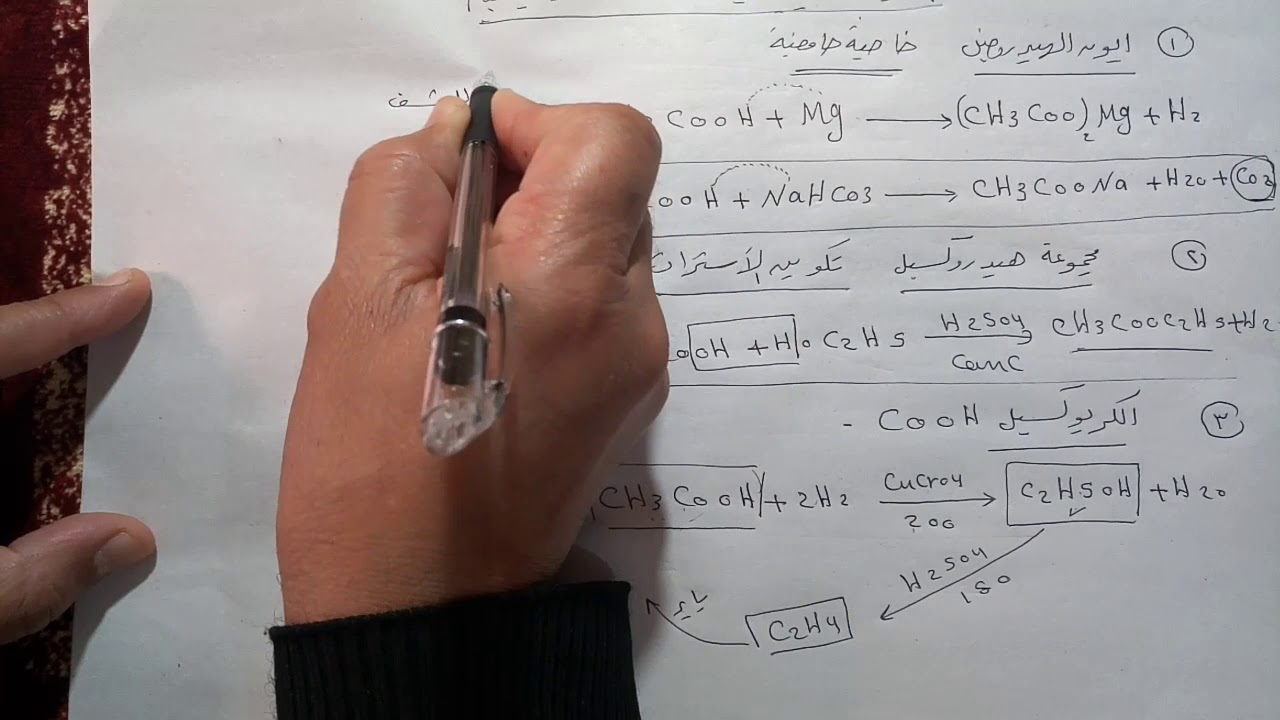 ① ايون الهيدروجين خاصية حامضية
COOH + Mg → (CH3COO)2Mg + H2
الكشف
OOH + NaHCO3 → CH3COONa + H2O + CO2
② مجموعة هيدروكسيل تكوين الأسترات
OOH + HOC2H5 H2SO4 conc → CH3COOC2H5 + H2
③ الكربوكسيل COOH -
CH3COOH + 2H2 CuCrO4 200 → C2H5OH + H2O
H2SO4 180
C2H4